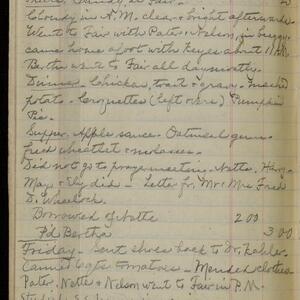 Cloudy in A.M. clear & bright afterwards
Went to Fair with Pater & Nelson, in buggy
came home afoot with
Bertha went to Fair all day
Dinner - Chicken, toast & gravy - Mashed
potato - Croquettes (left overs) Pumpkin
Pie.
Supper. Apple sauce. Oatmeal gems.
Fried wheatlet & molasses.
Did not go to prayer meeting - Netta,
May & did - Letter fr. Mr & Mrs Fred
D. Wheelock.
Borrowed of Netta 2 00
Pd Bertha 3 00
Friday - Sent shoes back to Dr. Kahler.
Canned 6 qts tomatoes - Mended clothes
Pater, Netta & Nelson went to Fair in P.M.